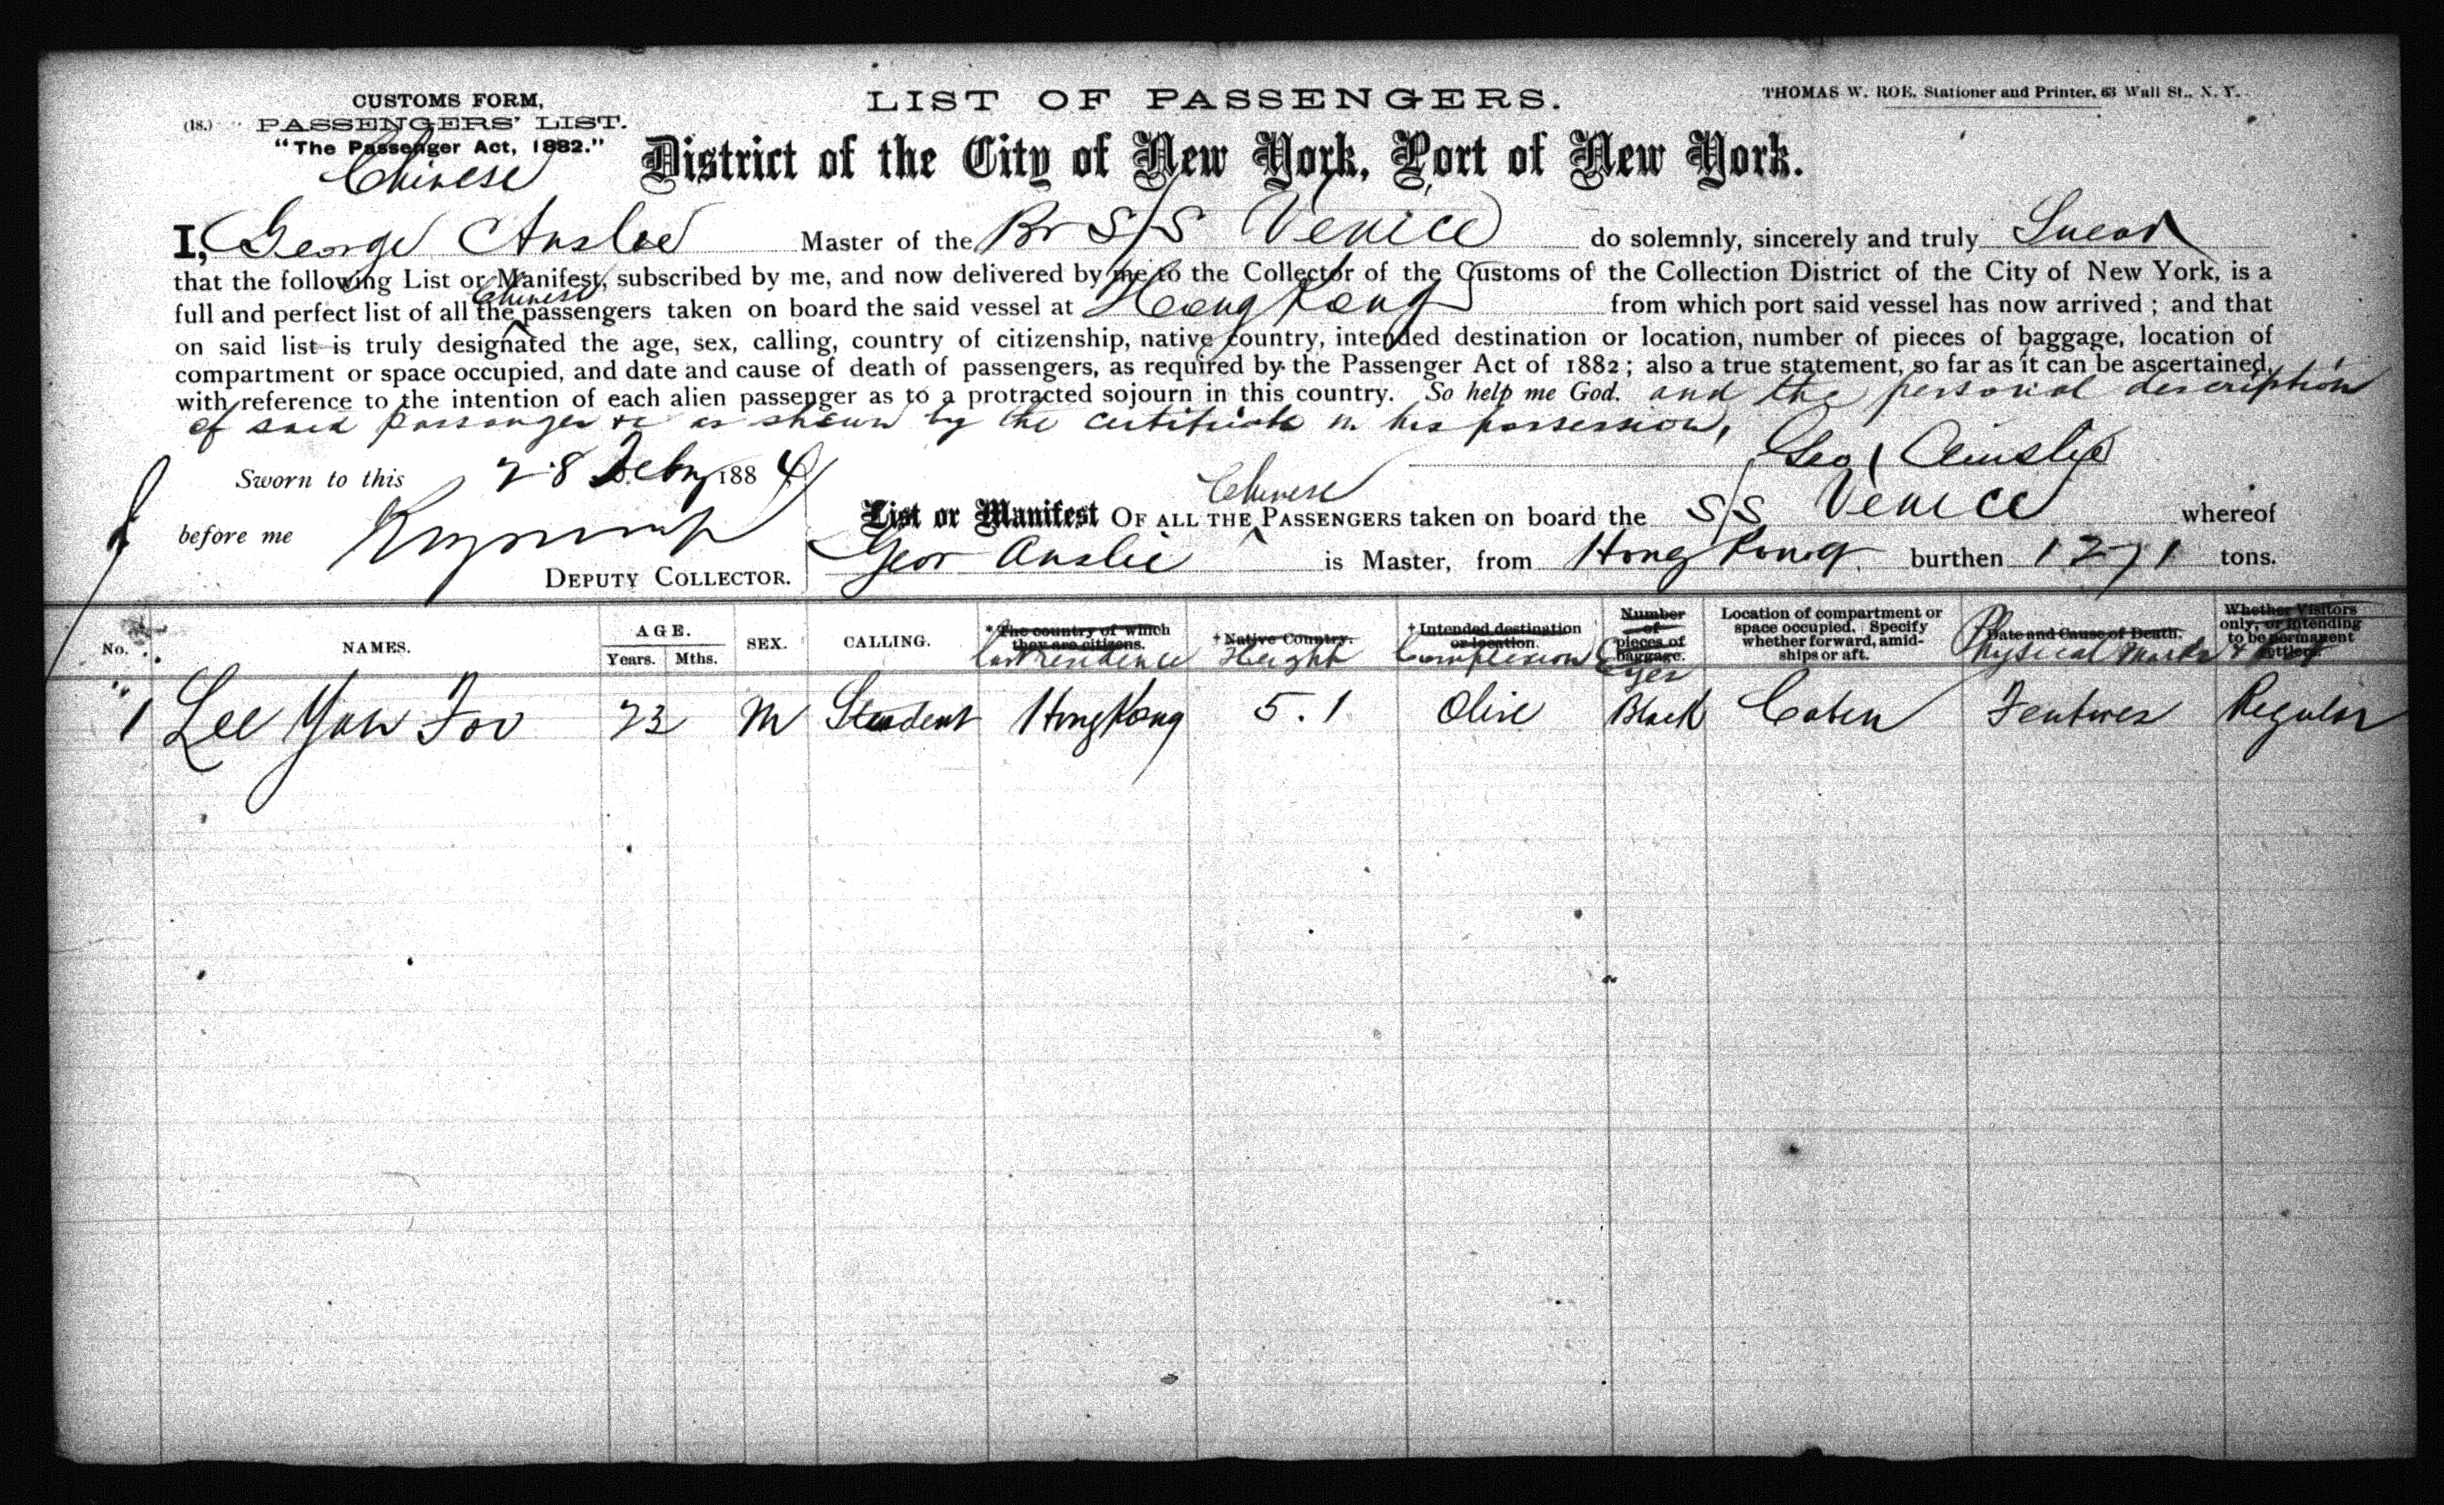 CUSTOMS FORM,
(18.) PASSENGERS' LIST.
"The Passenger Act, 1882."
Chinese
LIST OF PASSENGERS.
THOMAS W. ROE, Stationer and Printer, 63 Wall St., N. Y.
District of the City of New York, Port of New York.
I, George Anslee Master of the Br S/S Venice do solemnly, sincerely and truly Swear
that the following List or Manifest, subscribed by me, and now delivered by me to the Collector of the Customs of the Collection District of the City of New York, is a
full and perfect list of all the Chinese passengers taken on board the said vessel at Hong Kong from which port said vessel has now arrived; and that
on said list is truly designated the age, sex, calling, country of citizenship, native country, intended destination or location, number of pieces of baggage, location of
compartment or space occupied, and date and cause of death of passengers, as required by the Passenger Act of 1882; also a true statement, so far as it can be ascertained,
with reference to the intention of each alien passenger as to a protracted sojourn in this country. So help me God. and the personal description
of said passenger &c as shewn by the certificate in his possession,
Geo Ainslie
Sworn to this 28 Feby 1884
before me
DEPUTY COLLECTOR.
List or Manifest OF ALL THE Chinese PASSENGERS taken on board the S/S Venice whereof
Geor Anslie is Master, from Hong Kong burthen 1271 tons.
No. NAMES. AGE. Years. Mths. SEX. CALLING. * The country of which they are citizens. Last residence † Native Country. Height † Intended destination or location. Complexion Number of pieces of baggage. Eyes Location of compartment or space occupied. Specify whether forward, amidships or aft. Date and Cause of Death. Physical marks Whether Visitors only, or intending to be permanent settlers.
1 Lee Yan Foo 23 M Student Hong Kong 5.1 Olive Black Cabin Features Regular